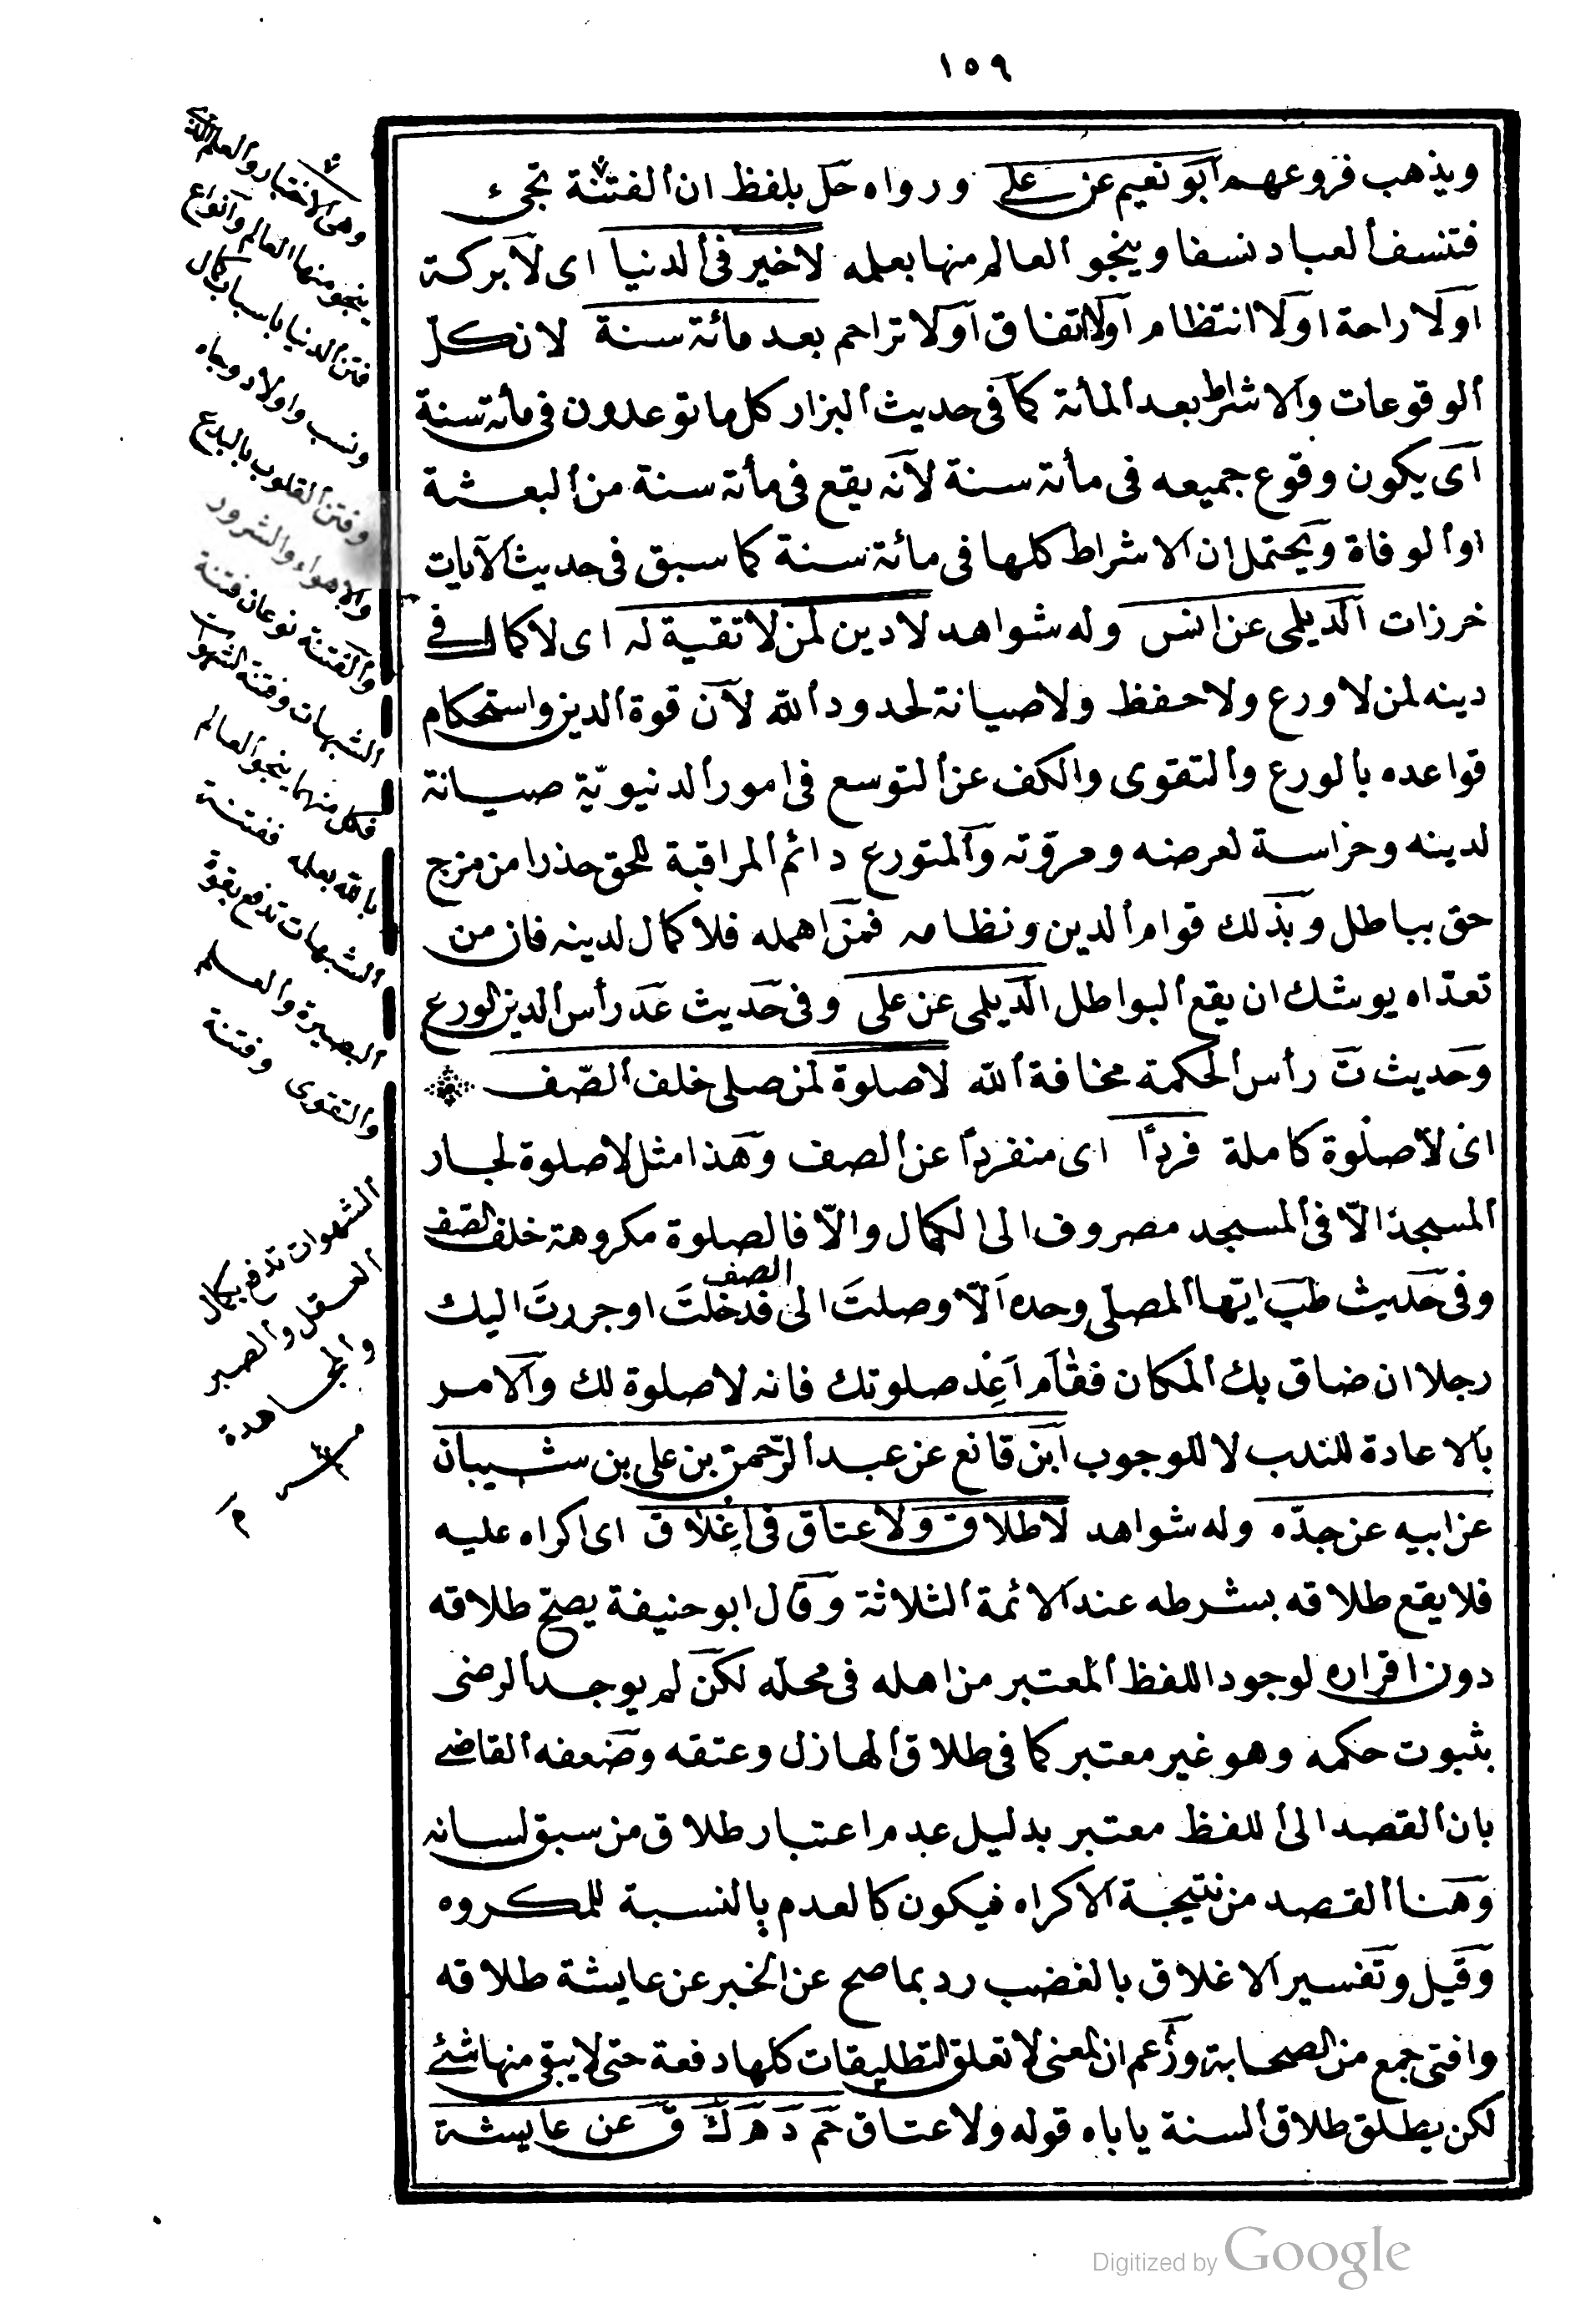 ١٥٩
ويذهب فروعهم أبو نعيم عن علي ورواه حل بلفظ ان الفتنة تجيء
فتنسف العباد نسفا وينجو العالم منها بعلمه لاخير في الدنيا اى لا بركة
اولا راحة اولا انتظام اولا اتفاق اولا تراحم بعد مائة سنة لان كل
الوقوعات والاشراط بعد المأة كما في حديث البزار كل ما توعدون في مأة سنة
اى يكون وقوع جميعه في مأة سنة لانه يقع في مأة سنة من البعثة
او الوفاة ويحتمل ان الاشراط كلها في مائة سنة كما سبق في حديث الآيات
خرزات الديلمى عن انس وله شواهد لا دين لمن لا تقية له اى لا كمال في
دينه لمن لا ورع ولا حفظ ولا صيانة لحدود الله لان قوة الدين واستحكام
قواعده بالورع والتقوى والكف عن التوسع في امور الدنيوية صيانة
لدينه وحراسة لعرضه ومروّته والمتورع دائم المراقبة للحق حذرا من مزج
حق بباطل وبذلك قوام الدين ونظامه فمن اهمله فلا كمال لدينه فان من
تعدّاه يوشك ان يقع البواطل الديلمى عن على وفى حديث عد رأس الدين الورع
وحديث ت رأس الحكمة مخافة الله لا صلوة لمن صلى خلف الصّف
اى لا صلوة كاملة فردًا اى منفردًا عن الصف وهذا مثل لا صلوة لجار
المسجد الّا في المسجد مصروف الى الكمال والّا فالصلوة مكروهة خلف الصّف
وفى حديث طب ايّها المصلى وحده الّا وصلتَ الى الصف فدخلتَ او جررتَ اليك
رجلا ان ضاق بك المكان فقام اعِد صلوتك فانه لا صلوة لك والامر
بالاعادة للندب لا للوجوب ابن قانع عن عبد الرّحمن بن على بن شيبان
عن ابيه عن جدّه وله شواهد لا طلاق ولا عتاق في اغلاق اى اكراه عليه
فلا يقع طلاقه بشرطه عند الائمة الثلاثة وقال ابو حنيفة يصح طلاقه
دون اقراره لوجود اللفظ المعتبر من اهله في محلّه لكن لم يوجد الرضى
بثبوت حكمه وهو غير معتبر كما في طلاق الهازل وعتقه وضعفه القاضى
بان القصد الى اللفظ معتبر بدليل عدم اعتبار طلاق من سبق لسانه
وهنا القصد من نتيجة الاكراه فيكون كالعدم بالنسبة للمكروه
وقيل وتفسير الاغلاق بالغضب رد بما صح عن الخبر عن عايشة طلاقه
وافتى جمع من الصحابة وزعم ان المعنى لا تعلق التطليقات كلها دفعة حتى لا يبقى منها شئ
لكن يطلق طلاق السنة ياباه قوله ولا عتاق حم د ه ك ق عن عايشة
وهى الاختبار والعلم الذى
ينجو منها العالم وانواع
فتن الدنيا باسباب كمال
ونسب واولاد وجاه
وفتن القلوب بالبدع
والاهواء والشرور
والفتنة نوعان فتنة
الشبهات وفتنة الشهوات
فكل منهما ينجو العالم
بالله بعلمه ففتنة
الشبهات تدفع بقوة
البصيرة والعلم
والتقوى وفتنة
الشهوات تدفع بكمال
العقل والصبر
والمجاهدة
م
Digitized by Google